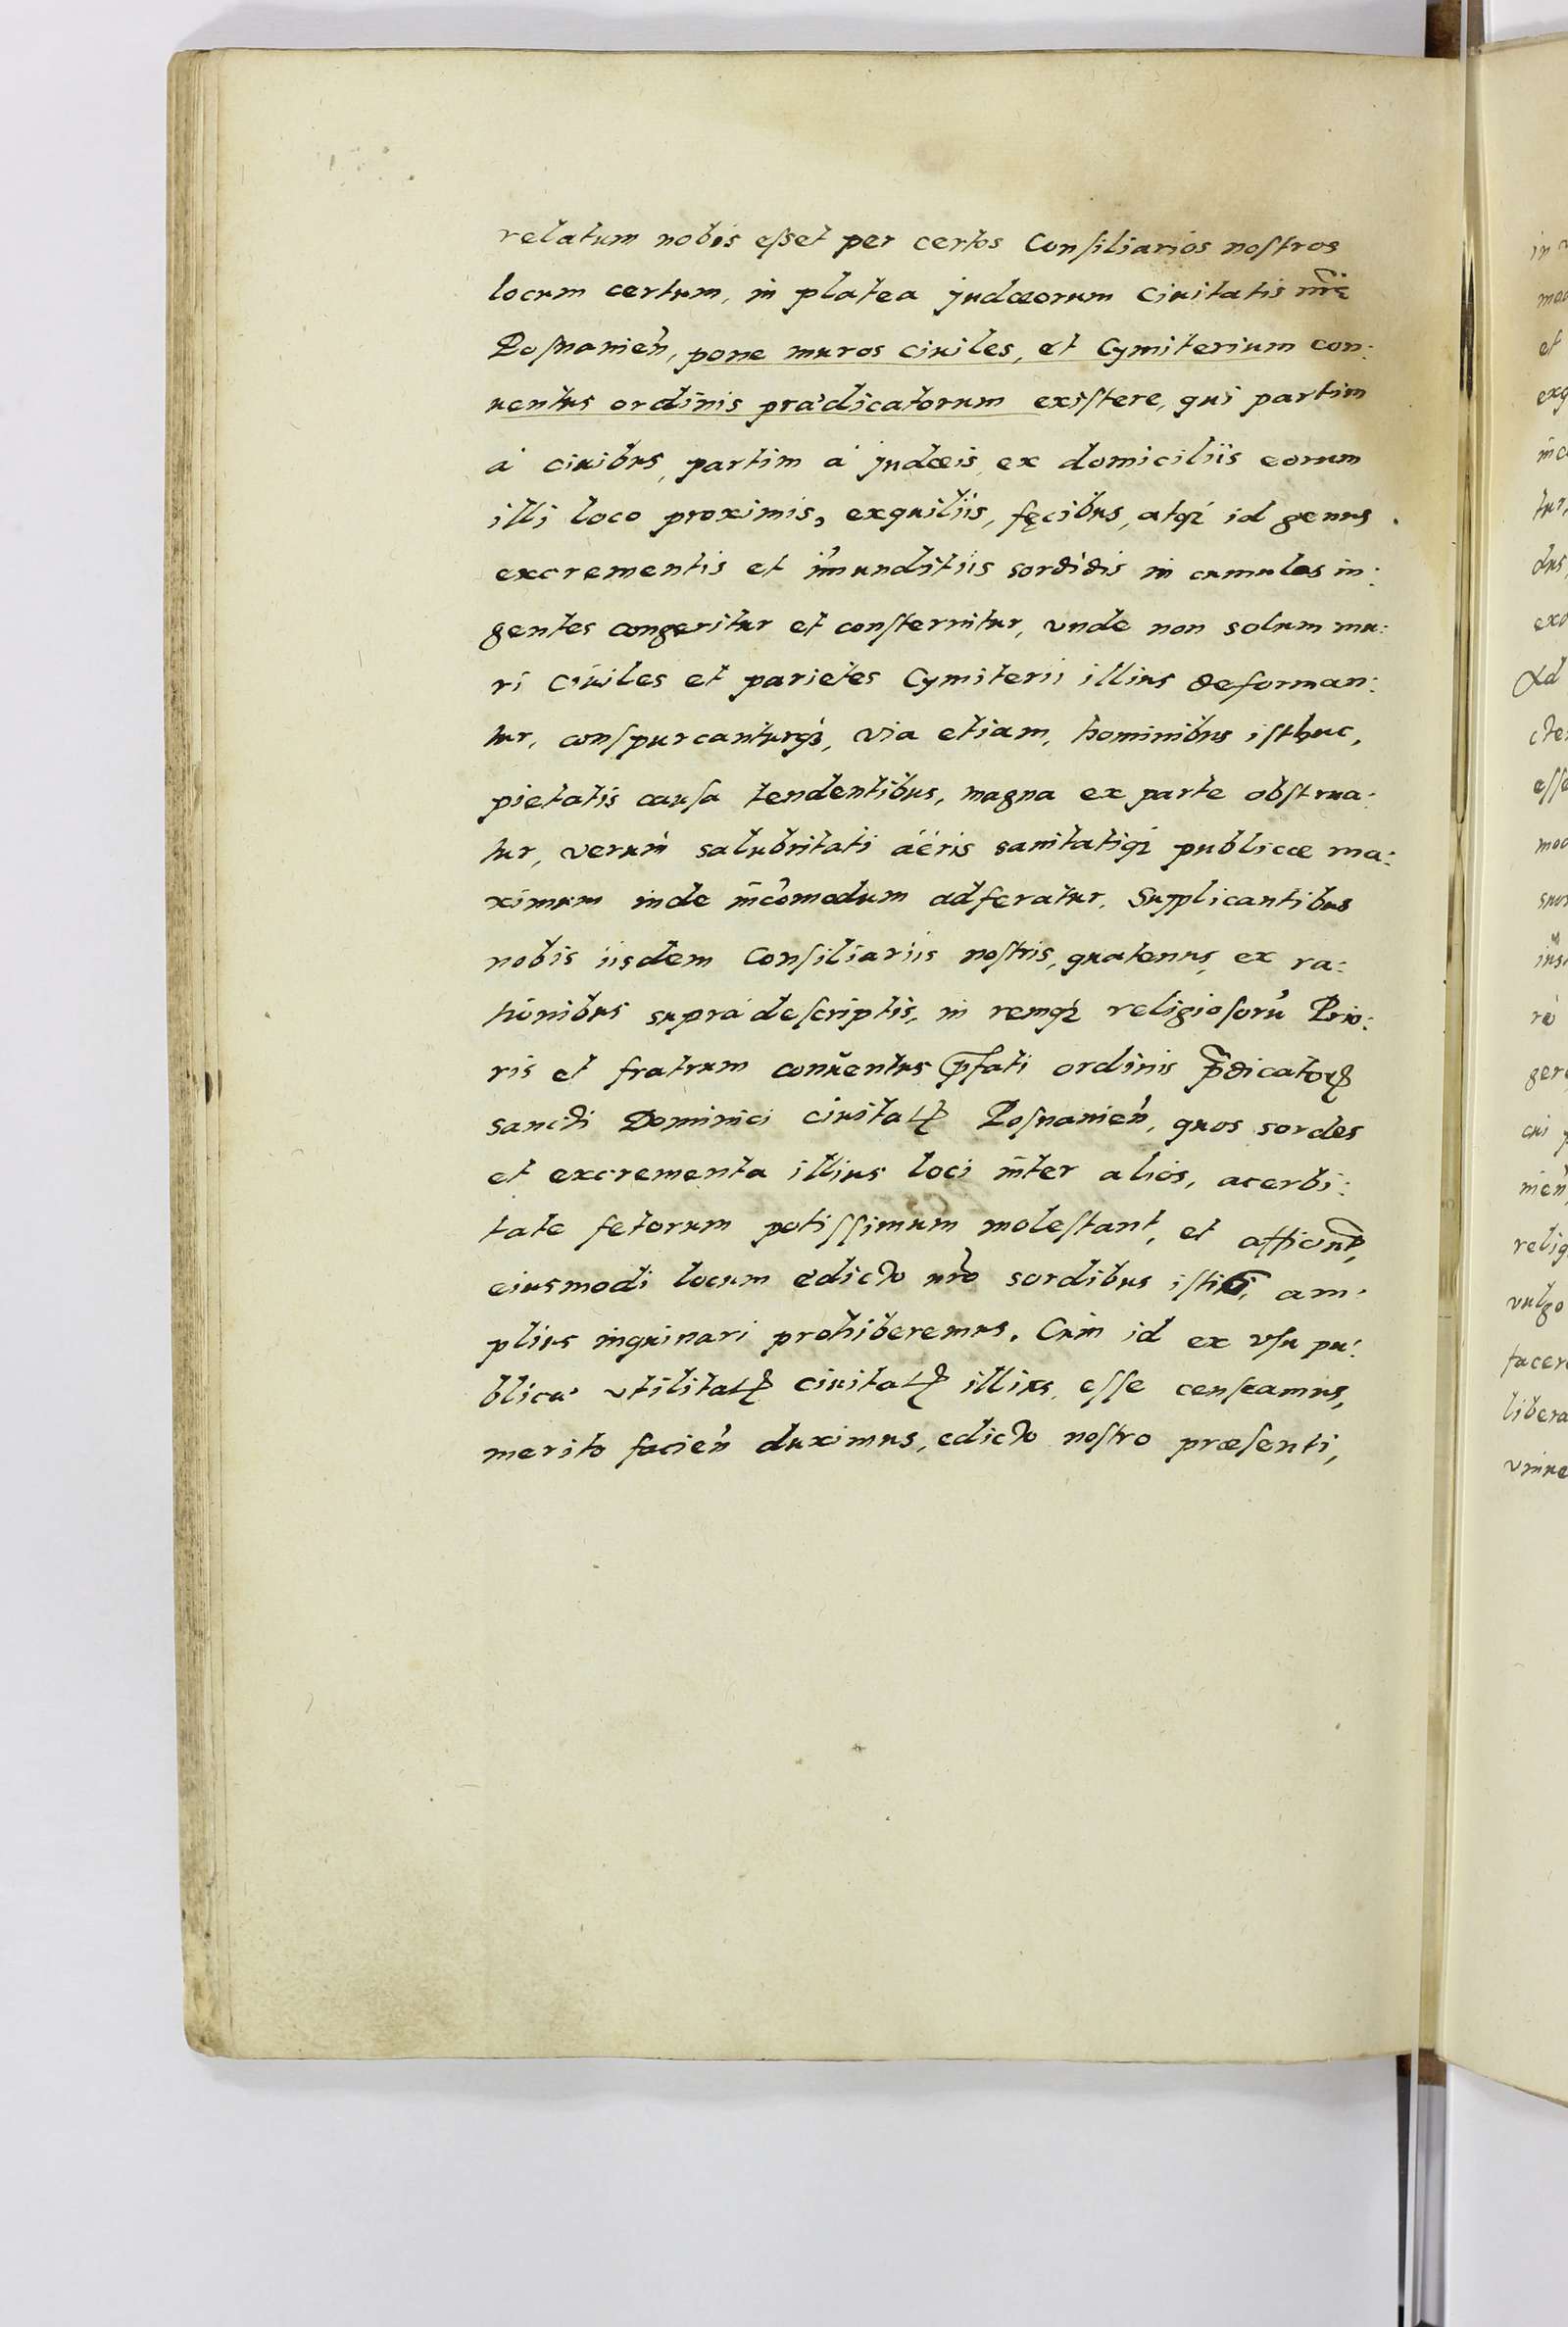 relatum nobis eſset per certos Conſiliarios noſtros
locum certum, in platea judæorum Ciuitatis nr̃ę
Poſnanień, pone muros ciuiles, et Cymiterium con:
uentus ordinis prædicatorum exiſtere, qui partim
à ciuibus, partim à judæis, ex domiciliis eorum
illi loco proximis, exquiliis, fęcibus, atq́ꝫ id genus
excrementis et im̃unditiis sordidis in cumulos in:
gentes congeritur et conſternitur, vnde non solum mu:
ri Ciuiles et parietes Cymiterii illius deforman:
tur, conſpurcanturq́ꝫ, via etiam, hominibus iſthuc,
pietatis cauſa tendentibus, magna ex parte obſtrua:
tur, verum̀ salubritati aëris sanitatiq́ꝫ publicæ ma:
ximum inde incõmodum adferatur. Supplicantibus
nobis iisdem Conſiliariis noſtris, quatenus, ex ra:
tionibus suprà deſcriptis, in remq́ꝫ religioſorũ Prio:
ris et fratrum conuentus p̃fati ordinis p̃dicatorꝝ
sancti Dominici ciuitatꝭ Poſnanień, quos sordes
et excrementa illius loci inter alios, acerbi:
tate fetorum potiſſimum moleſtant, et afficiunt,
eiusmodi locum edicto nr̃o sordibus iſtis, am:
plius inquinari prohiberemus. Cum̀ id ex vſu pu:
blicæ vtilitatꝭ ciuitatꝭ illius, eſſe cenſeamus,
merito facień duximus, edicto noſtro præſenti,